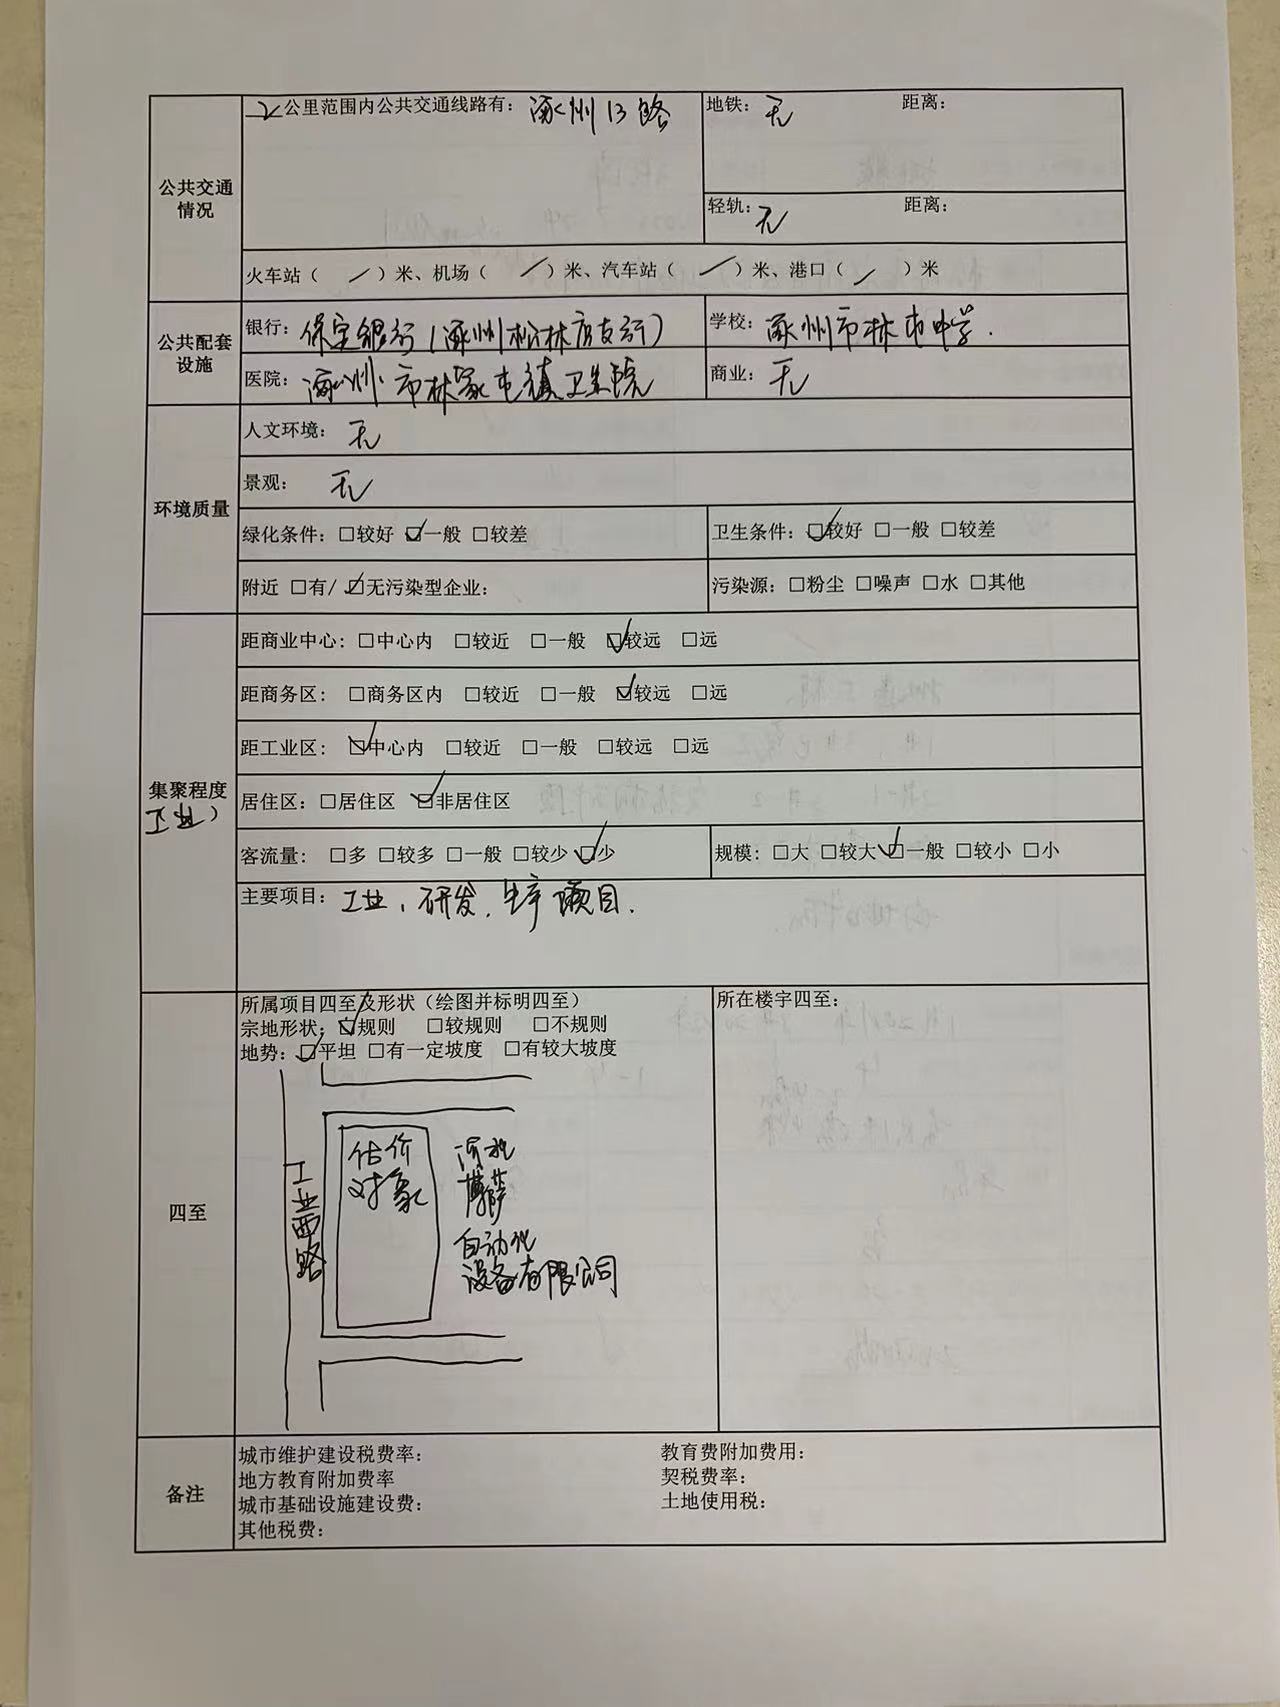 公共交通情况
2公里范围内公共交通线路有: 涿州13路
地铁: 无 距离:
轻轨: 无 距离:
火车站（ / ）米、机场（ / ）米、汽车站（ / ）米、港口（ / ）米
公共配套设施
银行: 保定银行（涿州松林店支行）
学校: 涿州市林屯中学.
医院: 涿州市林家屯镇卫生院
商业: 无
环境质量
人文环境: 无
景观: 无
绿化条件: □较好 ☑一般 □较差
卫生条件: ☑较好 □一般 □较差
附近 □有/ ☑无污染型企业:
污染源: □粉尘 □噪声 □水 □其他
集聚程度
工业）
距商业中心: □中心内 □较近 □一般 ☑较远 □远
距商务区: □商务区内 □较近 □一般 ☑较远 □远
距工业区: ☑中心内 □较近 □一般 □较远 □远
居住区: □居住区 ☑非居住区
客流量: □多 □较多 □一般 □较少 ☑少
规模: □大 □较大 ☑一般 □较小 □小
主要项目: 工业、研发、生产项目.
四至
所属项目四至及形状（绘图并标明四至）
宗地形状: ☑规则 □较规则 □不规则
地势: ☑平坦 □有一定坡度 □有较大坡度
工业西路
估价
对象
河北
博萨
自动化
设备有限公司
所在楼宇四至:
备注
城市维护建设税费率: 教育费附加费用:
地方教育附加费率 契税费率:
城市基础设施建设费: 土地使用税:
其他税费: